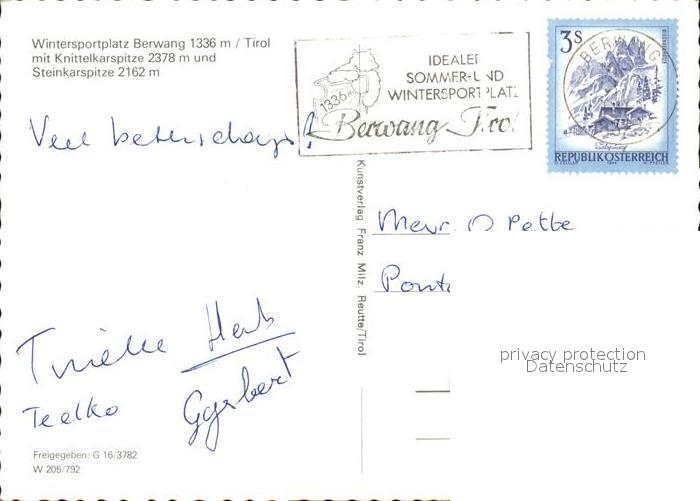 Wintersportplatz Berwang 1336 m / Tirol
mit Knittelkarspitze 2378 m und
Steinkarspitze 2162 m
1336m
IDEALER
SOMMER-UND
WINTERSPORTPLATZ
Berwang Tirol
3 S
BERWANG
REPUBLIK ÖSTERREICH
Veel beterschap!
Kunstverlag Franz Milz, Reutte/Tirol
Mevr. O Pette
Pont
privacy protection
Datenschutz
Tineke Herb
Tedko Gerbert
Freigegeben: G 16/3782
W 205/792